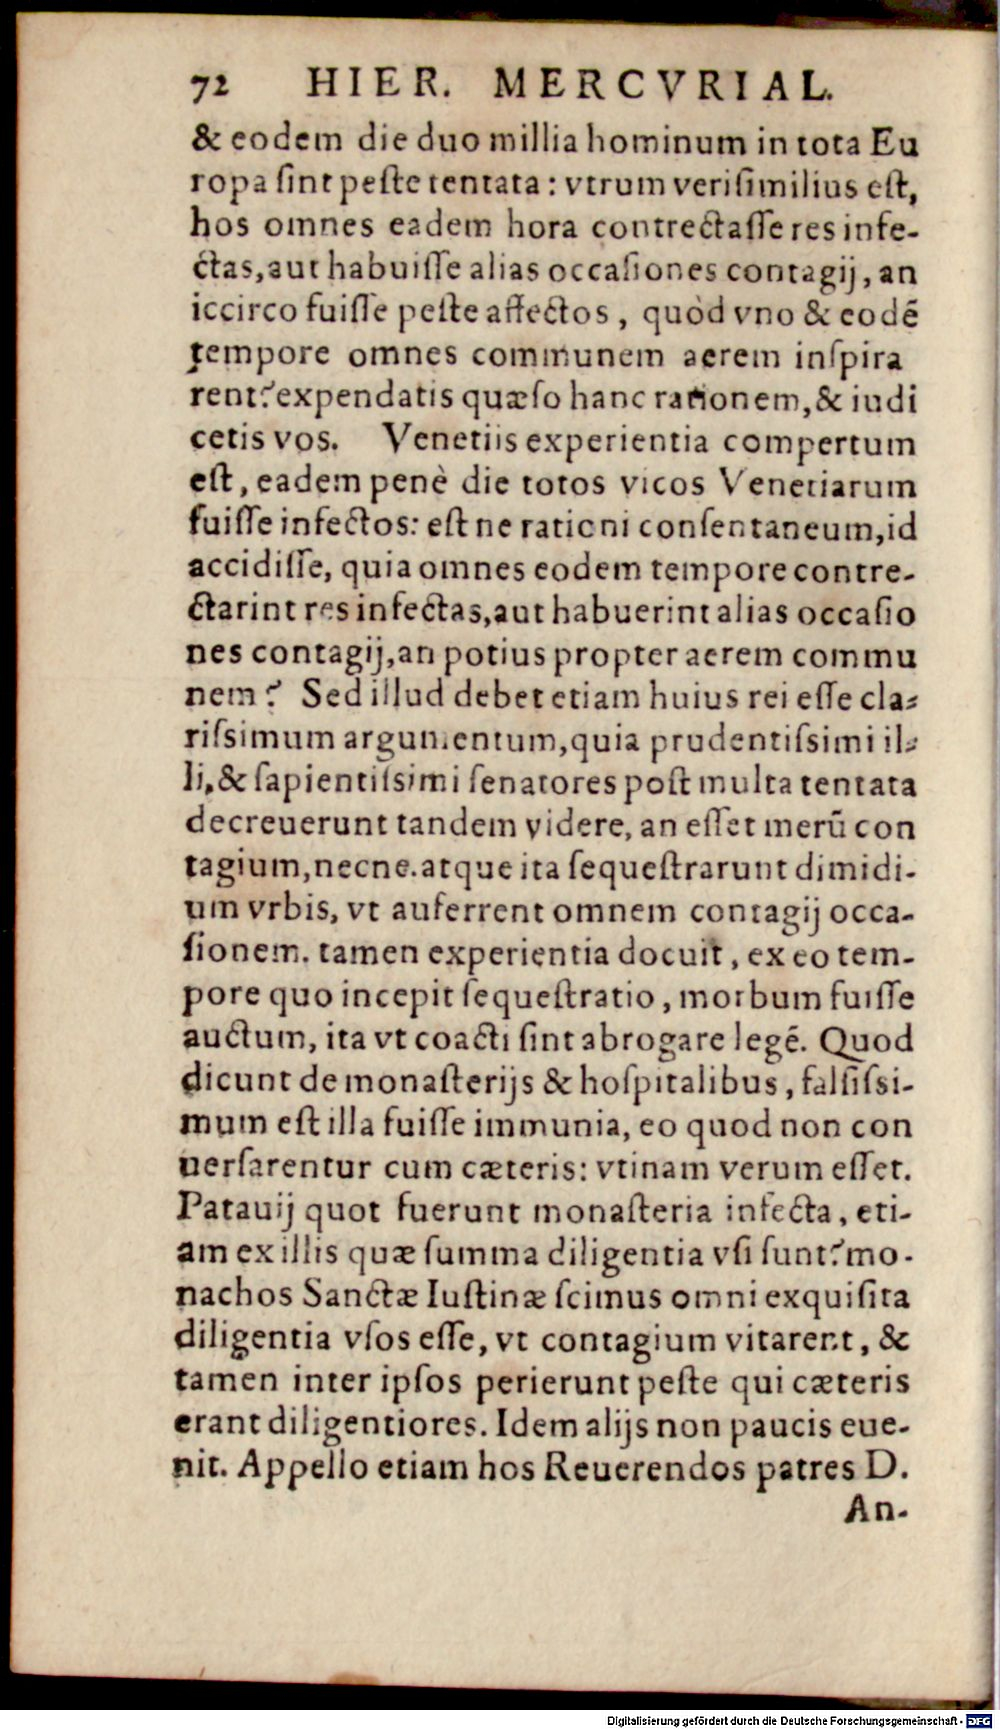 72 HIER. MERCVRIAL.
& eodem die duo millia hominum in tota Eu
ropa ſint peſte tentata: vtrum veriſimilius eſt,
hos omnes eadem hora contrectaſſe res infe-
ctas, aut habuiſſe alias occaſiones contagij, an
iccirco fuiſſe peſte affectos, quòd vno & eodē
tempore omnes communem aerem inſpira
rent? expendatis quæſo hanc rationem, & iudi
cetis vos. Venetiis experientia compertum
eſt, eadem penè die totos vicos Venetiarum
fuiſſe infectos: eſt ne rationi conſentaneum, id
accidiſſe, quia omnes eodem tempore contre-
ctarint res infectas, aut habuerint alias occaſio
nes contagij, an potius propter aerem commu
nem? Sed illud debet etiam huius rei eſſe cla-
riſsimum argumentum, quia prudentiſsimi il-
li, & ſapientiſsimi ſenatores poſt multa tentata
decreuerunt tandem videre, an eſſet merū con
tagium, necne. atque ita ſequeſtrarunt dimidi-
um vrbis, vt auferrent omnem contagij occa-
ſionem. tamen experientia docuit, ex eo tem-
pore quo incepit ſequeſtratio, morbum fuiſſe
auctum, ita vt coacti ſint abrogare legē. Quod
dicunt de monaſterijs & hoſpitalibus, falſiſsi-
mum eſt illa fuiſſe immunia, eo quod non con
uerſarentur cum cæteris: vtinam verum eſſet.
Patauij quot fuerunt monaſteria infecta, eti-
am ex illis quæ ſumma diligentia vſi ſunt? mo-
nachos Sanctæ Iuſtinæ ſcimus omni exquiſita
diligentia vſos eſſe, vt contagium vitarent, &
tamen inter ipſos perierunt peſte qui cæteris
erant diligentiores. Idem alijs non paucis eue-
nit. Appello etiam hos Reuerendos patres D.
An-
Digitalisierung gefördert durch die Deutsche Forschungsgemeinschaft - DFG